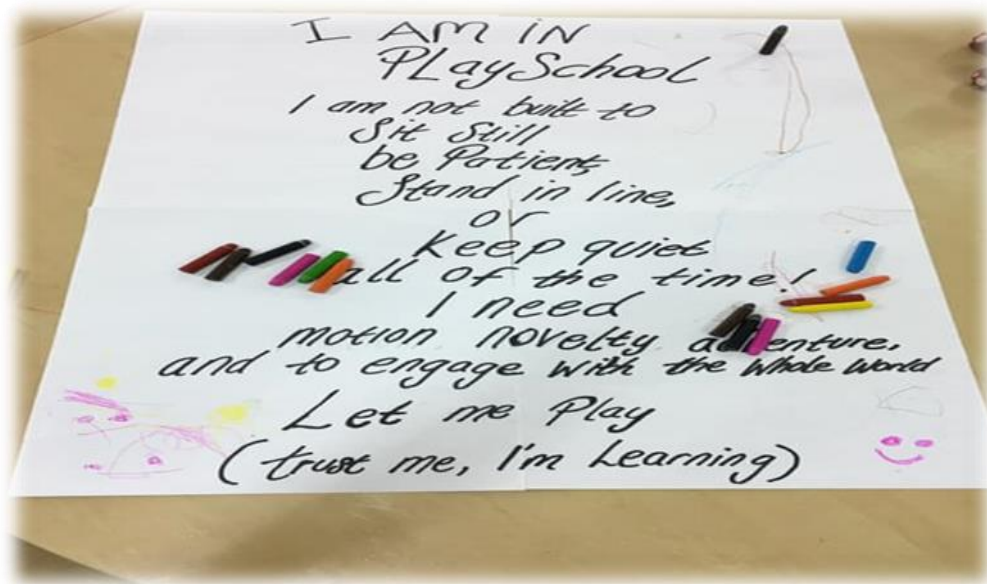 I AM IN
PLaySchool
I am not built to
Sit Still
be Patient,
Stand in line,
or
Keep quiet
all of the time!
I need
motion novelty adventure,
and to engage with the whole world
Let me Play
(trust me, I'm Learning)